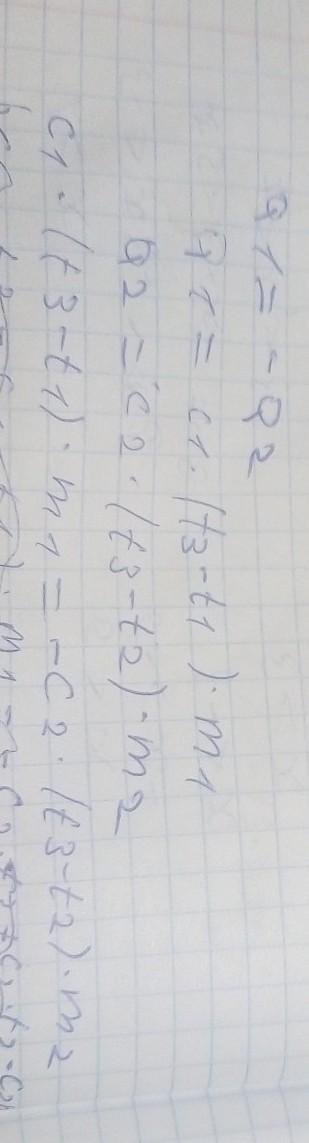 Q1 = -Q2
Q1 = c1·(t3-t1)·m1
Q2 = c2·(t3-t2)·m2
c1·(t3-t1)·m1 = -c2·(t3-t2)·m2